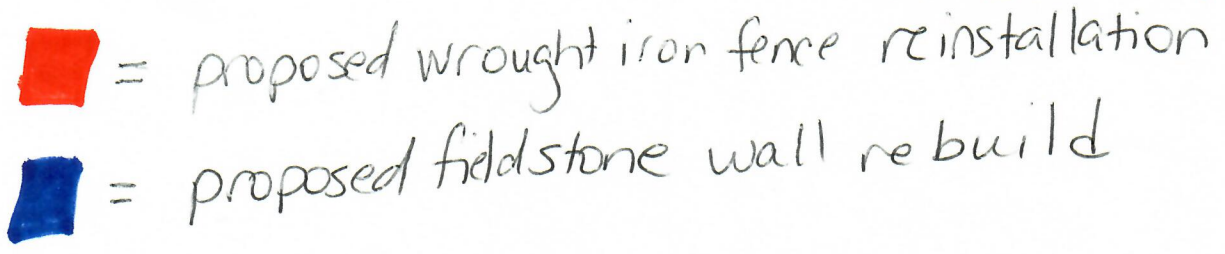 = proposed wrought iron fence reinstallation
= proposed fieldstone wall rebuild